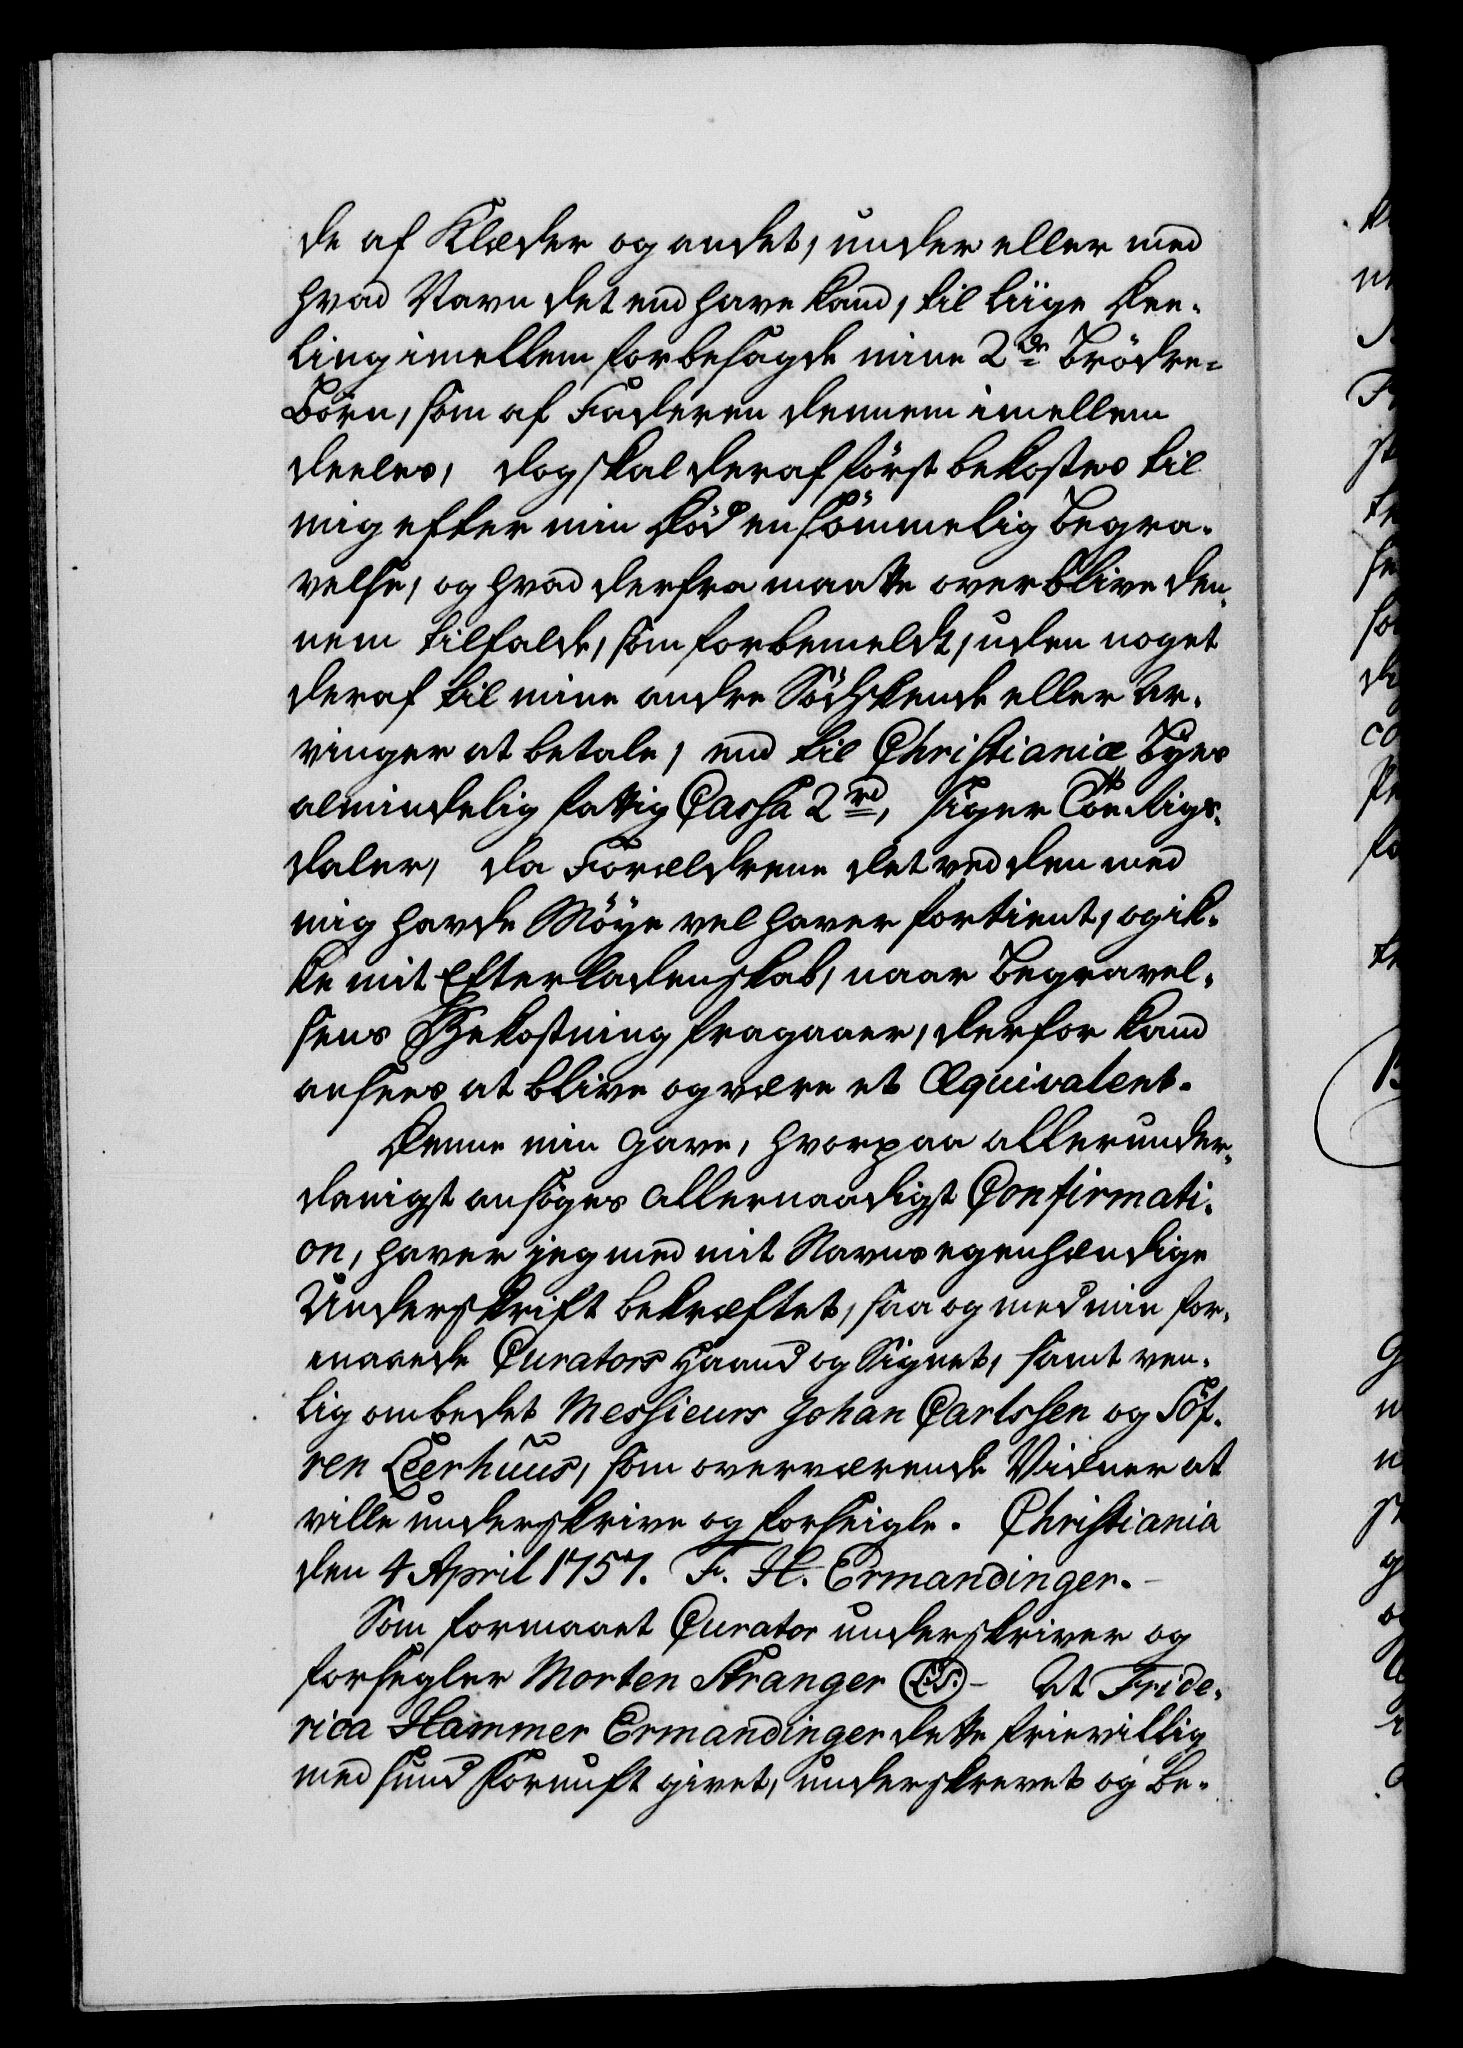 de af Klæder og andet, under eller med
hvad Navn det end have kand, til liige Dee-
ling imellem forbesagde mine 2de Brödre-
Börn, som af Faderen dennem imellem
deeles, dog skal deraf först bekostes til
mig efter min Död en sömmelig Begra-
velse, og hvad derfra maatte overblive den-
nem tilfalde, som forbemeldt, uden noget
deraf til mine andre Södskende eller Ar-
vinger at betale, end til Christianiæ Byes
almindelig fattig Cassa 2rd, siger Toe Rigs-
daler, da Forældrene det ved den med
mig havde Möye vel haver fortient, og ik-
ke mit Efterladenskab, naar Begravel-
sens Bekostning fragaaer, derfor kand
ansees at blive og være et Æquivalent.
Denne min Gave, hvorpaa allerunder-
danigst ansöges allernaadigst Confirmati-
on, haver jeg med mit Navns egenhændige
Underskrift bekræftet, saa og med min for-
maaede Curators Haand og Signet, samt ven-
lig ombedet Messieurs Johan Carlssen og Söf-
ren Leerhuus, som overværende Vidner at
ville underskrive og forseigle. Christiania
den 4 April 1757. F. H. Ermandinger.
Som formaaet Curator underskriver og
forsegler Morten Stranger (L.S.) - At Fride-
rica Hammer Ermandinger dette frievillig
med sund Fornuft givet, underskrevet og be-